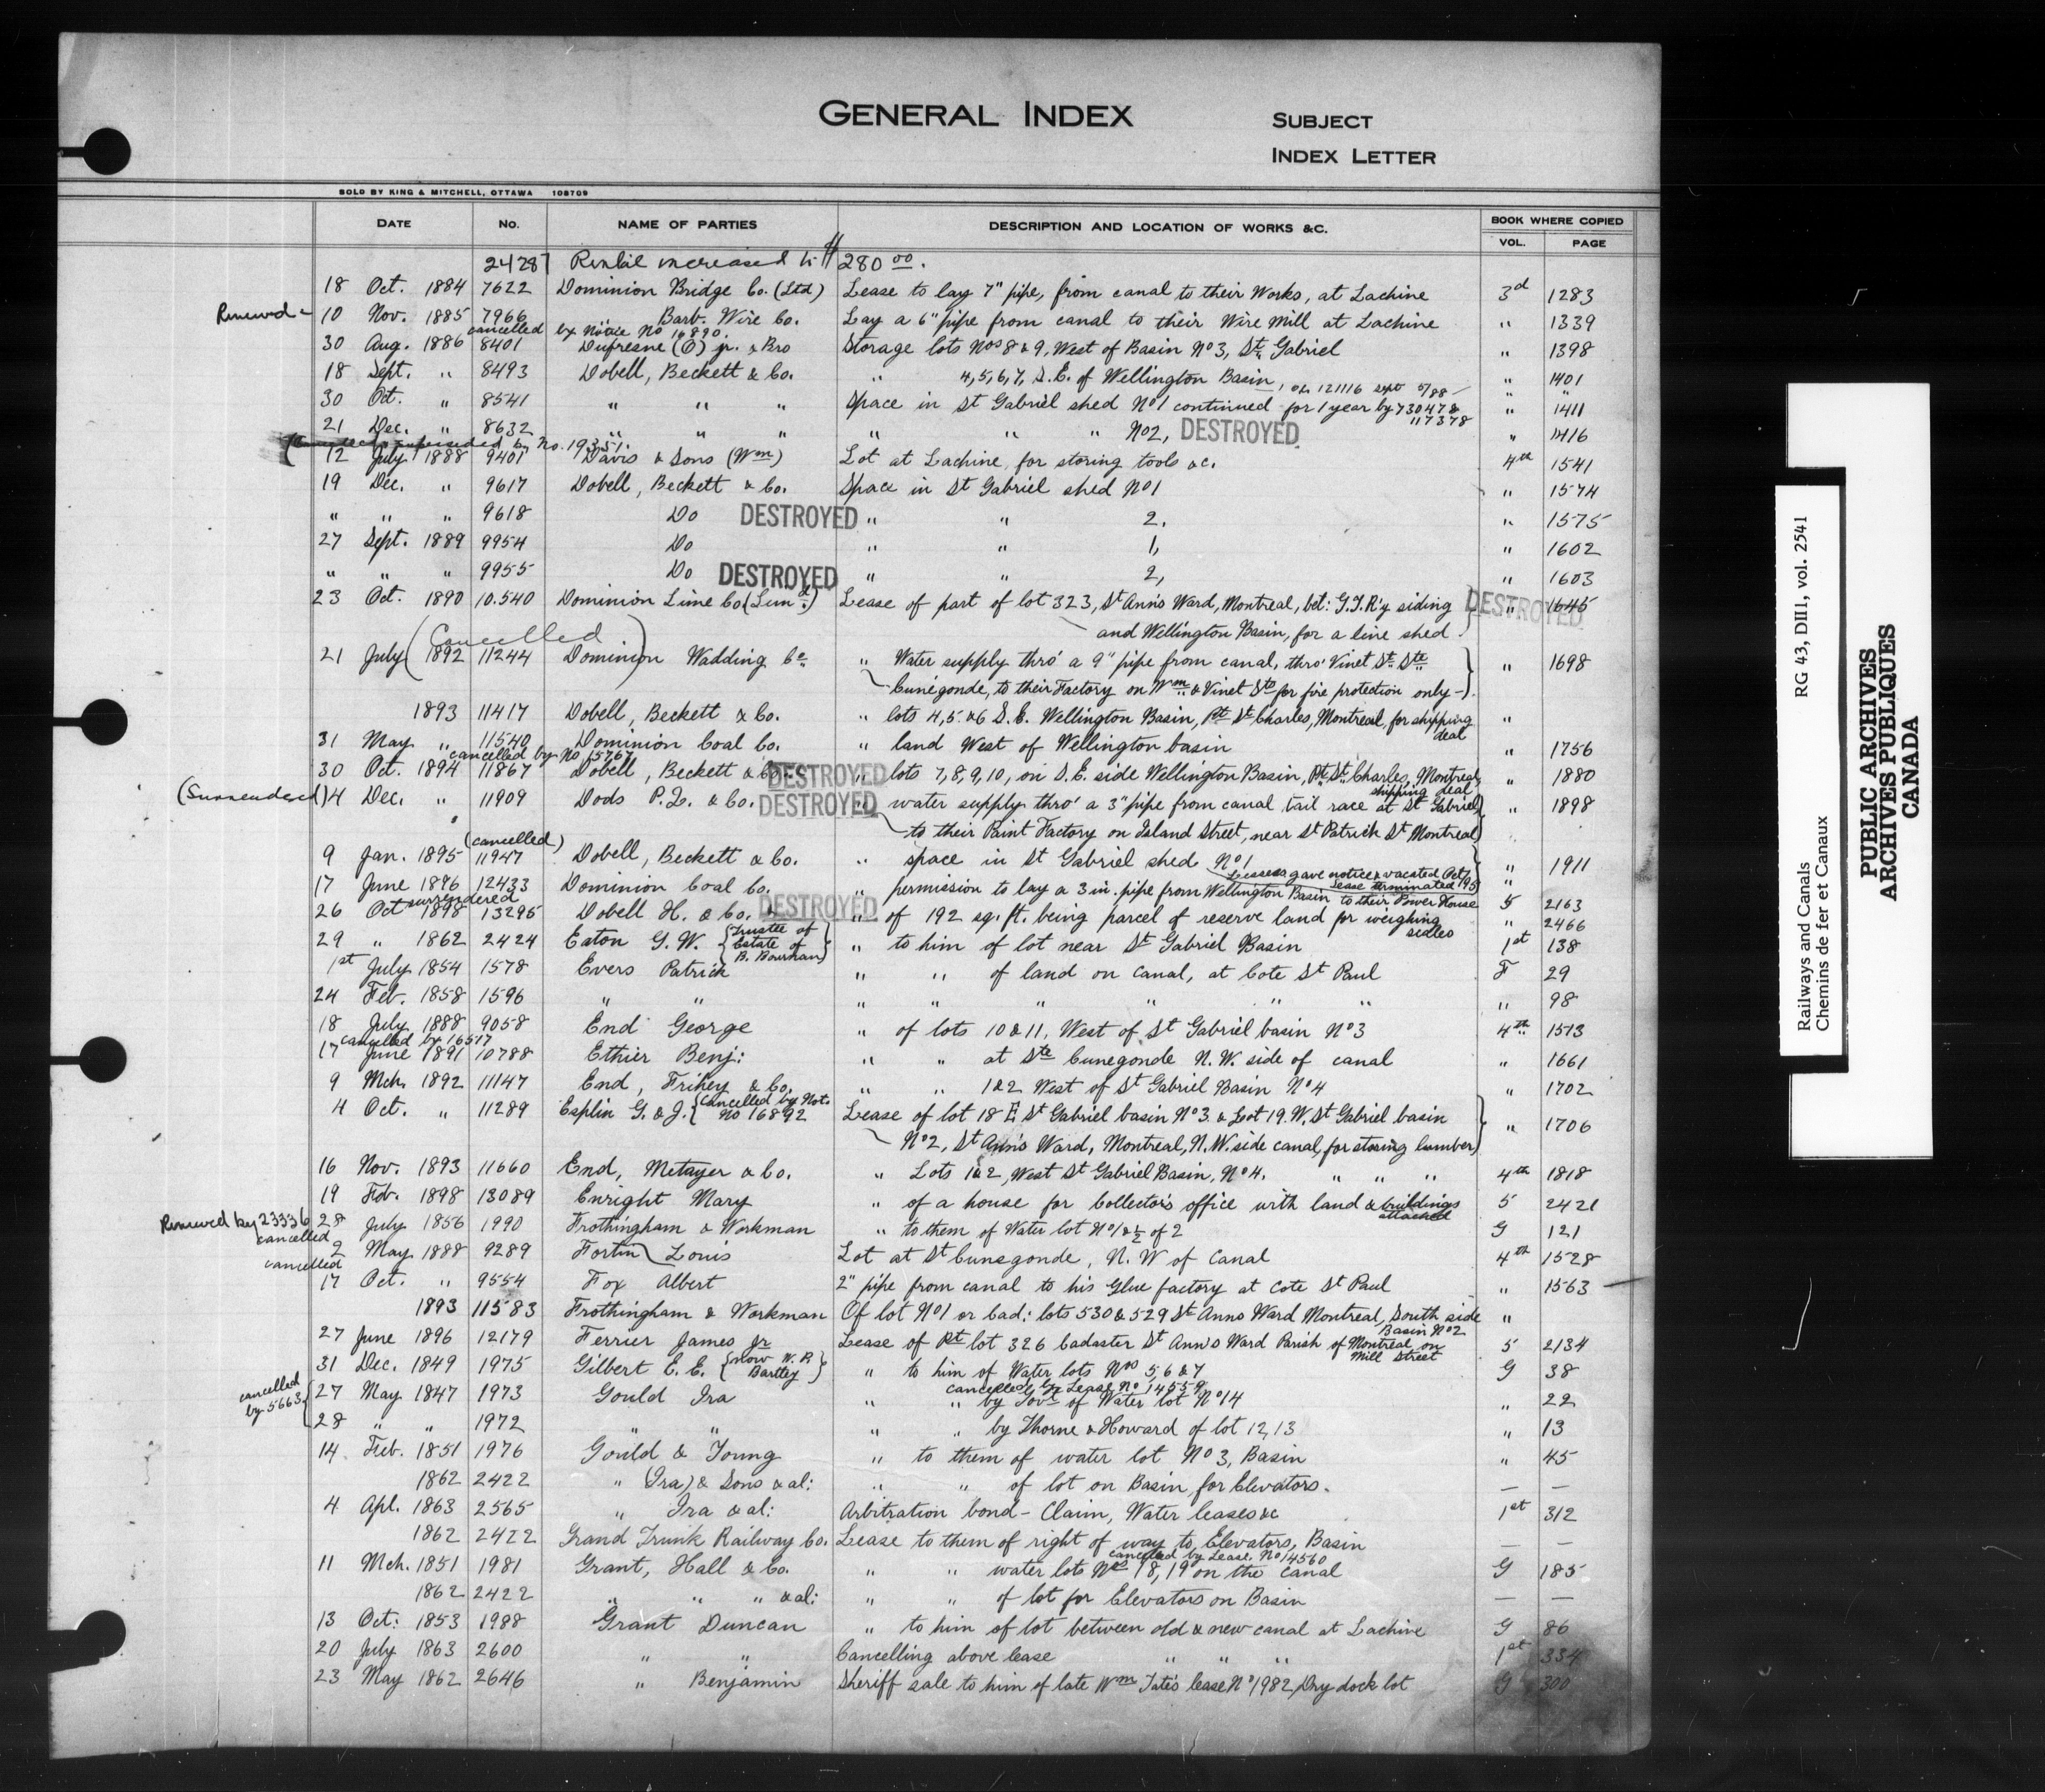 GENERAL INDEX
SUBJECT
INDEX LETTER
SOLD BY KING & MITCHELL, OTTAWA 108709
DATE No. NAME OF PARTIES DESCRIPTION AND LOCATION OF WORKS &C. BOOK WHERE COPIED
VOL. PAGE
24287 Rental increased to $280 00.
18 Oct. 1884 7622 Dominion Bridge Co. (Ltd) Lease to lay 7" pipe, from canal to their Works, at Lachine 3d 1283
Renewed - 10 Nov. 1885 7966 " Barb. Wire Co. Lay a 6" pipe from canal to their Wire Mill at Lachine " 1339
cancelled by Notice No 16890.
30 Aug. 1886 8401 Dufresne (O) jr. & Bro Storage lots Nos 8 & 9, West of Basin No 3, St. Gabriel " 1398
18 Sept. " 8493 Dobell, Beckett & Co. " 4,5,6,7, S.E. of Wellington Basin " 1401
30 Oct. " 8541 " " " Space in St Gabriel shed No 1 continued for 1 year by 730478 " 1411
117378
21 Dec. " 8632 " " " " " " No 2, DESTROYED " 1416
superseded by No. 19351.
12 July 1888 9401 Davis & Sons (Wm) Lot at Lachine for storing tools &c. 4th 1541
19 Dec. " 9617 Dobell, Beckett & Co. Space in St Gabriel shed No 1 " 1574
" " " 9618 Do DESTROYED " " 2. " 1575
27 Sept. 1889 9954 Do " " 1, " 1602
" " " 9955 Do DESTROYED " " 2, " 1603
23 Oct. 1890 10.540 Dominion Lime Co (Lim d.) Lease of part of lot 323, St Ann's Ward, Montreal, bet: G.T.R'y siding DESTROYED " 1645
and Wellington Basin, for a lime shed.
(Cancelled)
21 July 1892 11244 Dominion Wadding Co. " Water supply thro' a 9" pipe from canal, thro' Vinet St. Ste " 1698
Cunégonde, to their Factory on Wm. & Vinet Sts for fire protection only -).
1893 11417 Dobell, Beckett & Co. " lots 4,5 & 6 S.E. Wellington Basin, Pt St Charles, Montreal, for shipping deal "
31 May " 11540 Dominion Coal Co. " land West of Wellington basin " 1756
cancelled by No 15767
30 Oct. 1894 11867 Dobell, Beckett & Co. DESTROYED " lots 7,8,9,10, on S.E. side Wellington Basin, Pt. St. Charles, Montreal, shipping deal " 1880
(Surrendered) 4 Dec. " 11909 Dods P.D. & Co. DESTROYED " water supply thro' a 3" pipe from canal tail race at St Gabriel " 1898
to their Paint Factory on Island Street, near St Patrick St Montreal
(cancelled)
9 Jan. 1895 11947 Dobell, Beckett & Co. " space in St Gabriel shed No 1 " 1911
Lessees gave notice & vacated Oct
lease terminated 195
17 June 1896 12433 Dominion Coal Co. " permission to lay a 3 in. pipe from Wellington Basin to their Power House 5 2163
surrendered
26 Oct 1898 13295 Dobell H. & Co. DESTROYED " of 192 sq. ft. being parcel of reserve land for weighing scales " 2466
29 " 1862 2424 Eaton G. W. {Trustee of Estate of B. } " to him of lot near St Gabriel Basin 1st 138
1st July 1854 1578 Evers Patrick " " of land on canal, at Cote St Paul F 29
24 Feb. 1858 1596 " " " " " " " " " 98
18 July 1888 9058 End George " of lots 10 & 11, West of St Gabriel basin No 3 4th 1513
cancelled by 16517
17 June 1891 10788 Ethier Benj: " " at Ste Cunegonde N.W. side of canal " 1661
9 Mch. 1892 11147 End, Frihey & Co. " " 1 & 2 West of St Gabriel Basin No 4 " 1702
4 Oct. " 11289 Esplin G. & J. {Cancelled by Not. No 16892 Lease of lot 18 E St Gabriel basin No 3 & Lot 19. W. St Gabriel basin " 1706
No 2, St Ann's Ward, Montreal, N.W. side canal, for storing lumber)
16 Nov. 1893 11660 End, Metayer & Co. " Lots 1 & 2, West St Gabriel Basin, No 4. " " " 4th 1818
19 Feb. 1898 13089 Enright Mary " of a house for Collector's office with land & buildings attached 5 2421
Renewed by 23336 28 July 1856 1990 Frothingham & Workman " to them of Water lot No 1 & ½ of 2 G 121
cancelled 2 May 1888 9289 Fortin Louis Lot at St Cunegonde, N.W of Canal 4th 1528
cancelled 17 Oct. " 9554 Fox Albert 2" pipe from canal to his Glue factory at Cote St Paul " 1563
1893 11583 Frothingham & Workman Of lot No 1 or Cad: lots 530 & 529 St Anns Ward Montreal, South side Basin No 2 "
27 June 1896 12179 Ferrier James Jr Lease of Pt lot 326 Cadaster St Ann's Ward Parish of Montreal on Mill Street 5 2134
31 Dec. 1849 1975 Gilbert E. E. {now W. P. Bartley} " to him of Water lots Nos 5, 6 & 7 G 38
cancelled by Lease No 14559
cancelled by 5663 {27 May 1847 1973 Gould Ira " " by Govt of Water lot No 14 " 22
28 " " 1972 " " " " by Thorne & Howard of lot 12,13 " 13
14 Feb. 1851 1976 Gould & Young " to them of water lot No 3, Basin " 45
1862 2422 " (Ira) & Sons & al: " " of lot on Basin, for Elevators. — —
4 Apl. 1863 2565 " Ira & al: Arbitration bond - Claim, Water leases &c 1st 312
1862 2422 Grand Trunk Railway Co. Lease to them of right of way to Elevators, Basin — —
cancelled by Lease No 14560
11 Mch. 1851 1981 Grant, Hall & Co. " " water lots Nos 18, 19 on the canal G 185
1862 2422 " " " & al: " " of lot for Elevators on Basin — —
13 Oct: 1853 1988 Grant Duncan " to him of lot between old & new canal at Lachine G 86
20 July 1863 2600 " " Cancelling above lease " " " 1st 334
23 May 1862 2646 " Benjamin Sheriff sale to him of late Wm Tate's lease No 1982, Dry dock lot G 300
RG 43, DII1, vol. 2541
Railways and Canals
Chemins de fer et Canaux
PUBLIC ARCHIVES
ARCHIVES PUBLIQUES
CANADA